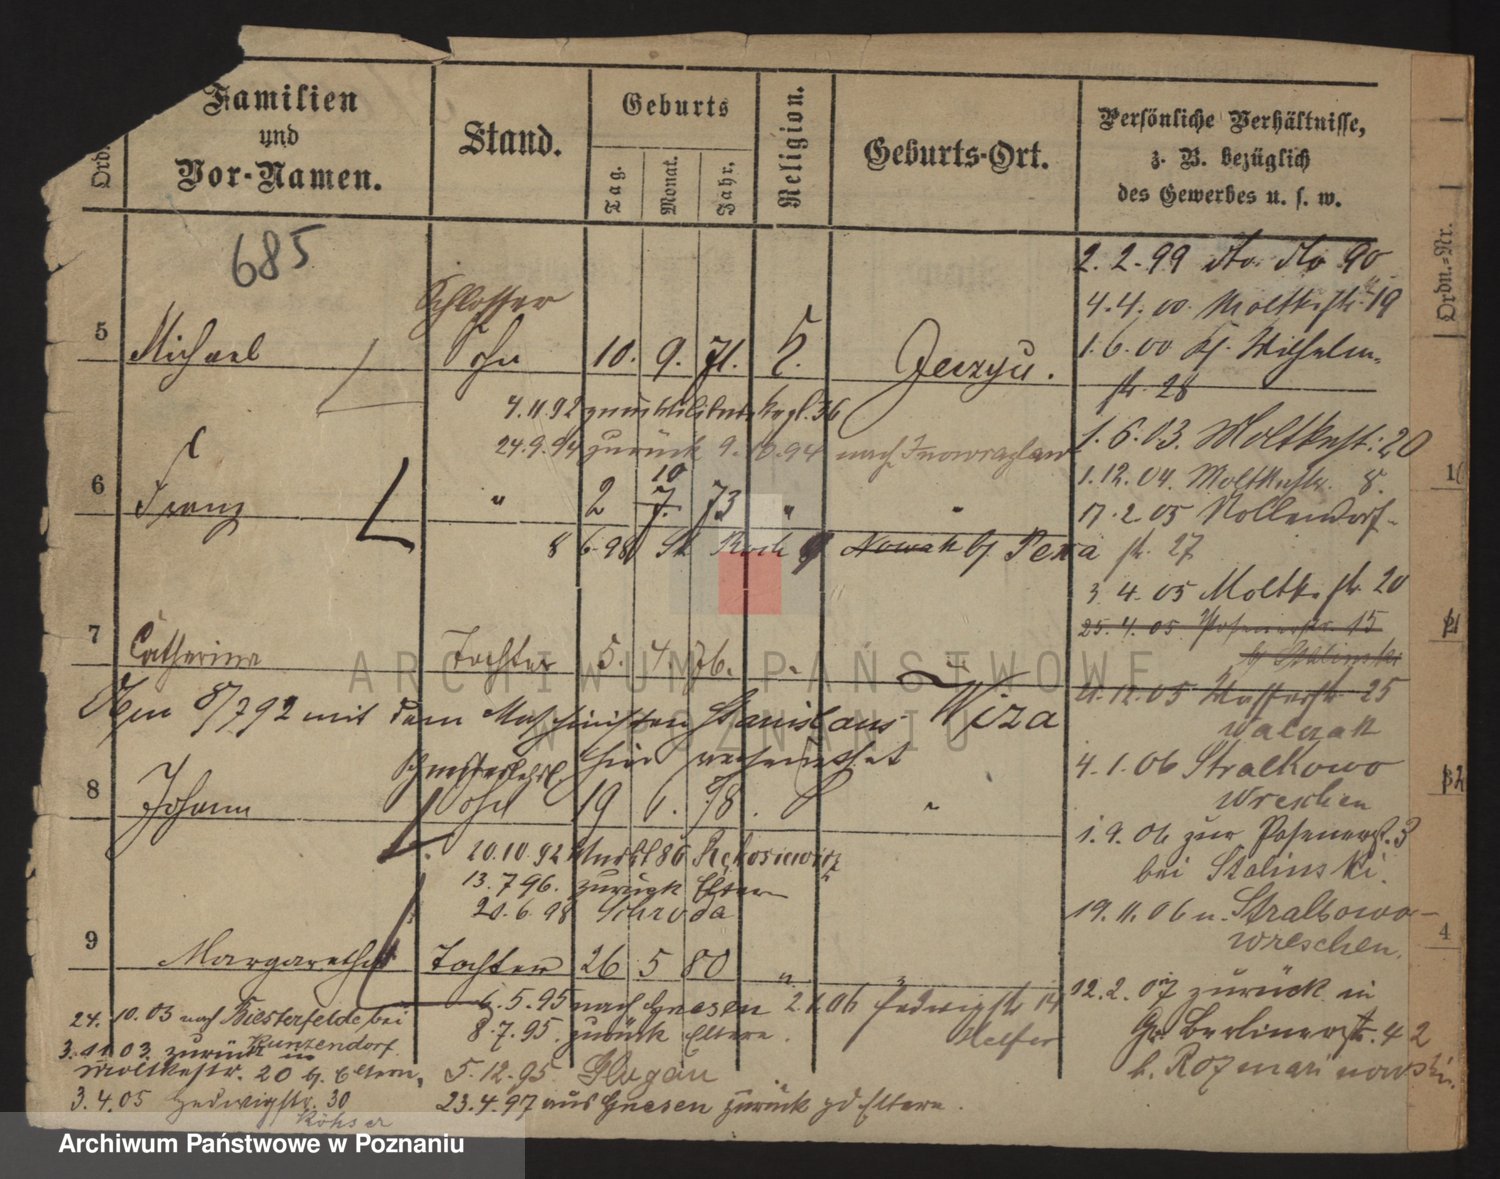 Ord.
Familien
und
Vor-Namen.
Stand.
Geburts
Tag.
Monat.
Jahr.
Religion.
Geburts-Ort.
Persönliche Verhältnisse,
z. B. bezüglich
des Gewerbes u. s. w.
Ordn.-Nr.
685
Schlosser
5 Michael Sohn 10. 9. 71. K. Jerzyce.
4.11.92 zum Militair 36
24.9.94 zurück 9.10.94 nach Inowrazlaw
10
6 Franz " 2 7. 73 " "
8 6.98 St Roch 9 Nowak bj Pexa
7 Catharina Tochter 5. 4. 76. "
Am 8/7 92 mit dem Maschinisten Stanislaus Wiza
hier verheirathet
8 Johann Sohn 19 6. 78. "
20.10.92 Markt 86 Rękosiewicz
13.7 96. zurück Eltern
20.6.98 Schroda
9 Margaretha Tochter 26 5 80 "
6.5.95 nach Gnesen 2.1.06 Hedwigstr 14
8.7.95. zurück Eltern. Helfer
5.12.95. Glogau
23.4.97 aus Gnesen zurück zd Eltern.
24.10.03 nach Biesterfelde, bei
Kunzendorf.
3.11.03. zurück in
Moltkestr. 20 bj. Eltern,
3.4.05 Hedwigstr. 30
2.2.99 dto. dto 90
4.4.00. Moltkestr. 19
1.6.00 Kj. Wilhelm-
str. 28
1.6.03. Moltkestr. 20
1.12.04. Moltkestr. 8.
17.2.05 Nollendorf-
str. 27
3.4.05 Moltkestr. 20
25.4.05. Posenerstr. 15
bj Stalinski
21.12.05 Wasserstr 25
Walczak
4.1.06 Stralkowo
Wreschen
1.9.06 zur Posenerst. 3
bei Stalinski.
19.11.06 n. Stralkowo-
Wreschen.
12.2.07 zurück in
Gr. Berlinerstr. 42
b. Rozmarinowski.
ARCHIWUM PAŃSTWOWE
W POZNANIU
Archiwum Państwowe w Poznaniu